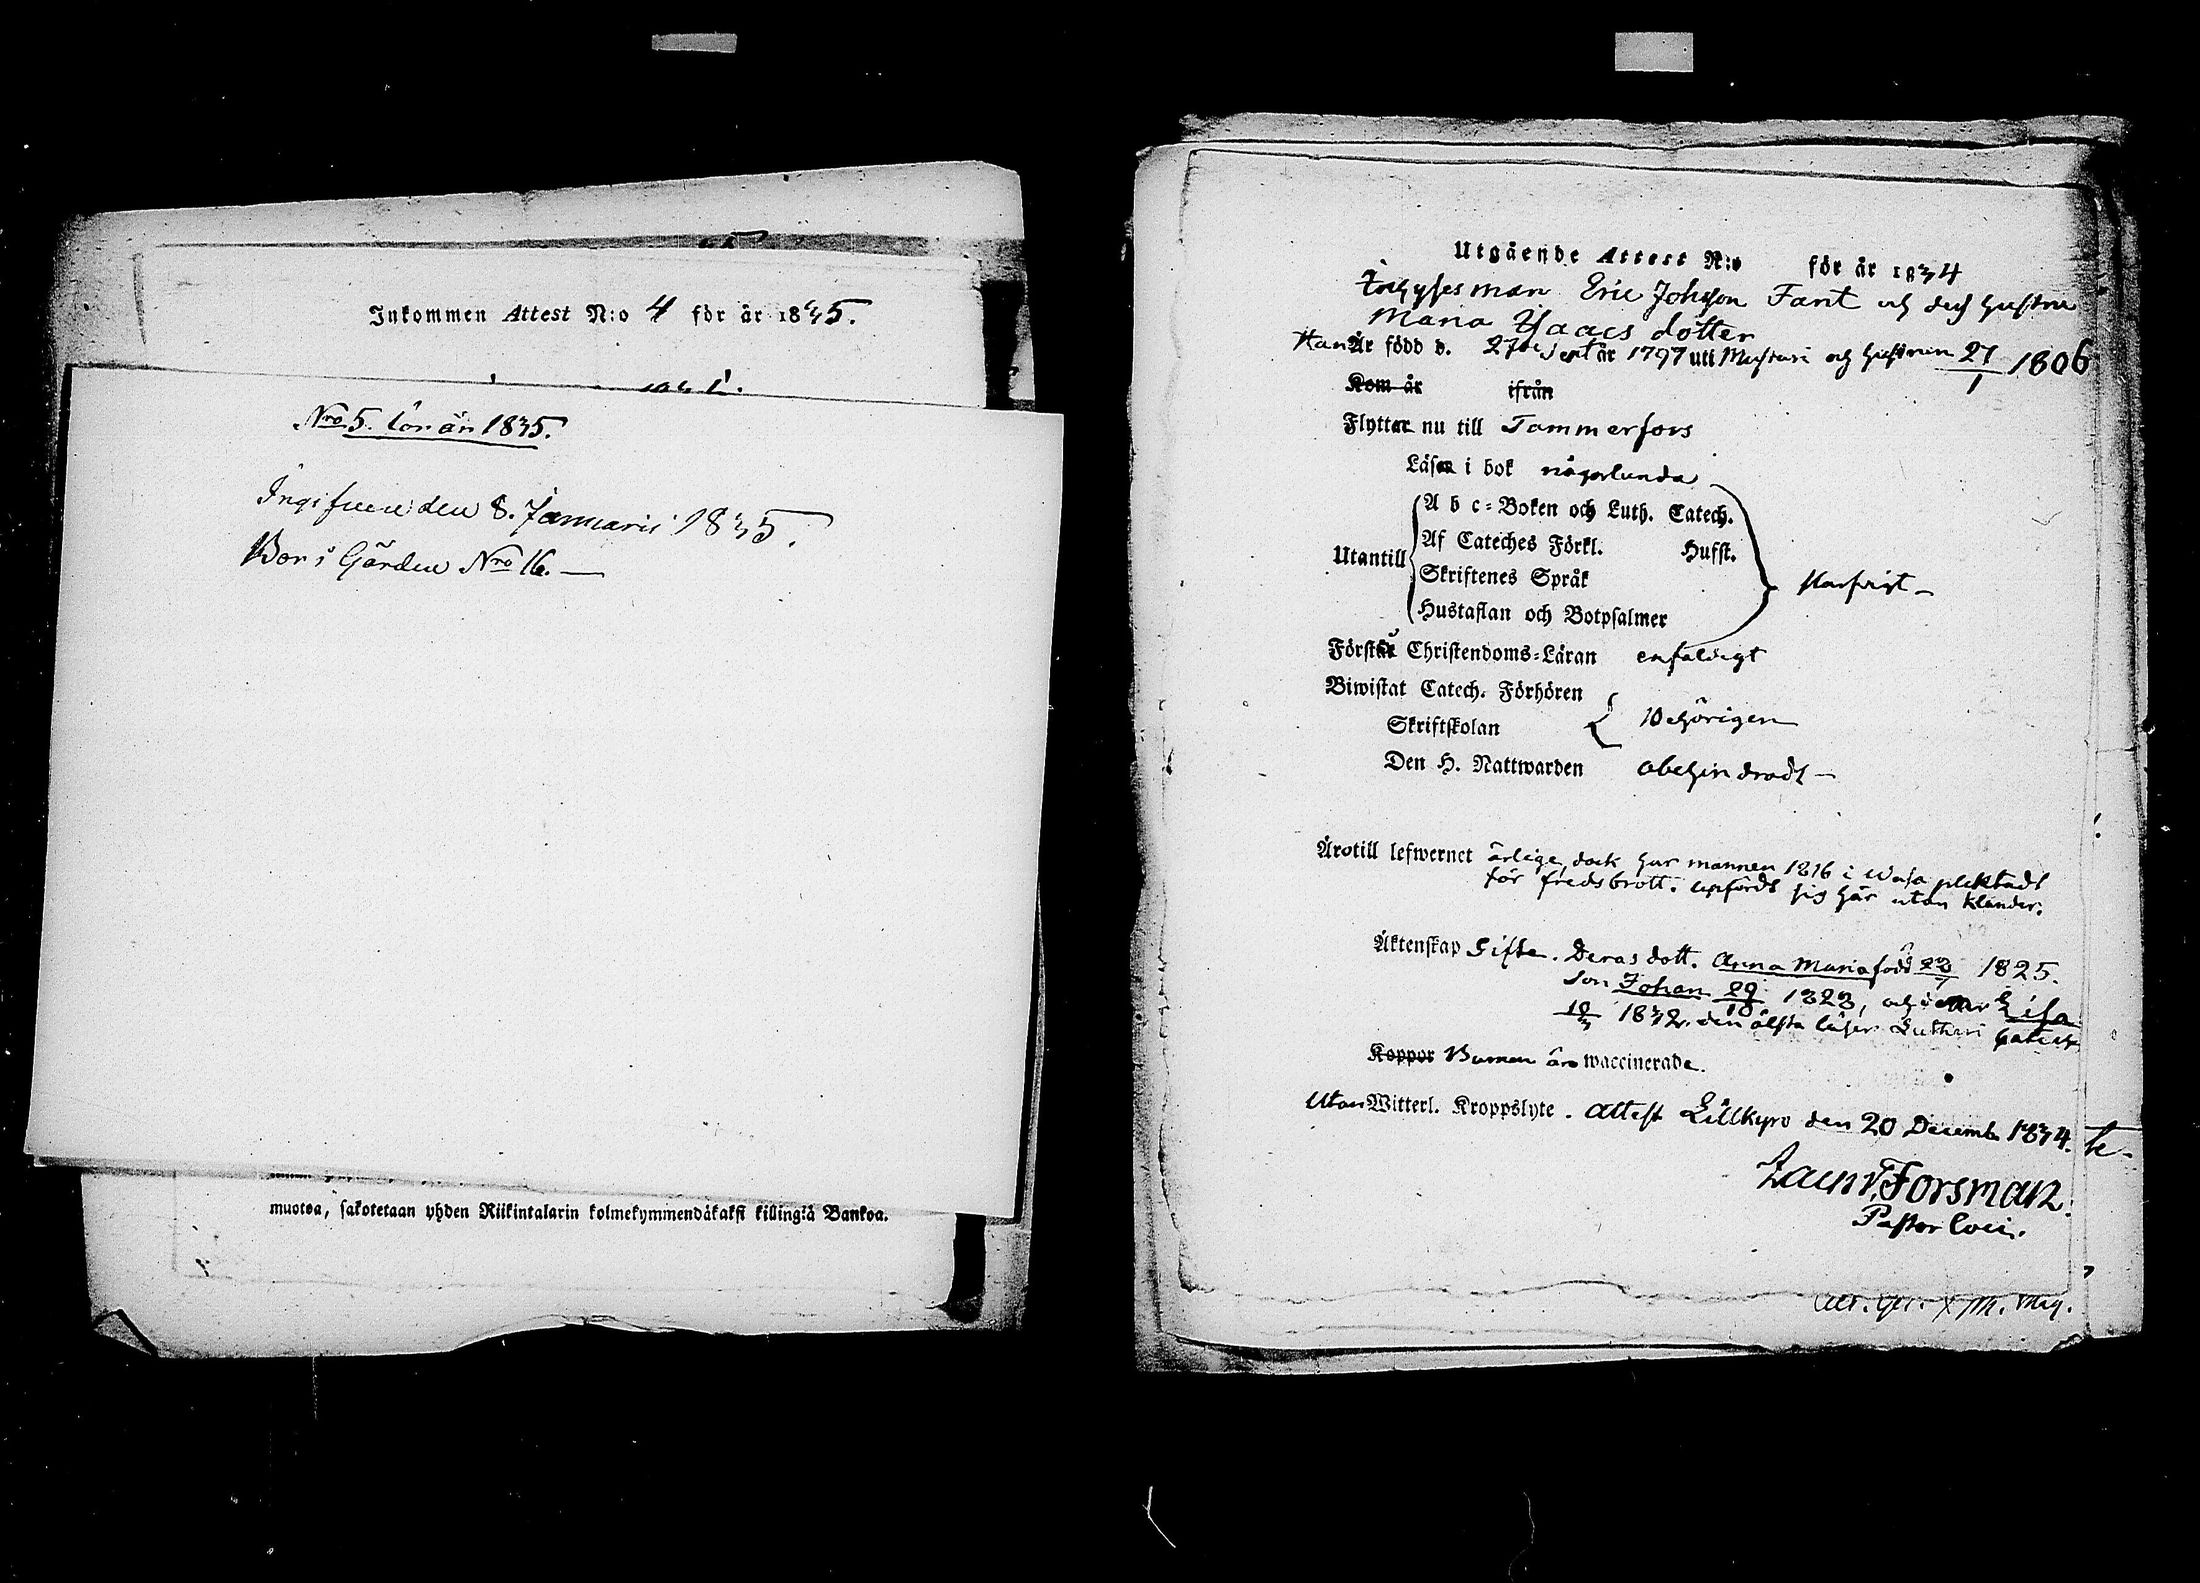 Inkommen Attest N:o 4 för år 1835.
Nro. 5. för år 1835.
Ingifven den 8. Januarii 1835.
Bor i Gården Nro 16. —
muotoa, sakotetaan yhden Riikintalarin kolmekymmendäkaksi killingiä Bankoa.
Utgående Attest N:o för år 1834
Inhysesman Eric Johsson Fant och dess hustru
Maria Isaacs dotter
Han Är född d. 27de Sept år 1797 uti Mustsari och hustrun 27/1 1806
Kom år ifrån
Flyttar nu till Tammerfors
Läser i bok någorlunda
A b c-Boken och Luth. Catech.
Af Cateches Förkl. Husst.
Utantill
Skriftenes Språk
Hustaflan och Botpsalmer
Förstår Christendoms-Läran enfaldigt
Biwistat Catech. Förhören
behörigen
Skriftskolan
Den H. Nattwarden obehindradt —
Äro till lefwernet ärlige, dock har mannen 1816 i Wasa pliktadt
för fredsbrott. upfördt sig här utan klander.
Äktenskap Gifte. Deras dott. Anna Maria född 1825.
son Johan 29/10 1828, och Lisa
1832. den älsta läser Lutheri Cateches
Koppor Barnen äro waccinerade.
Utan Witterl. Kroppslyte. Attest Lillkyro den 20 Decemb 1834.
Zachr. Forsman.
Pastor loci.